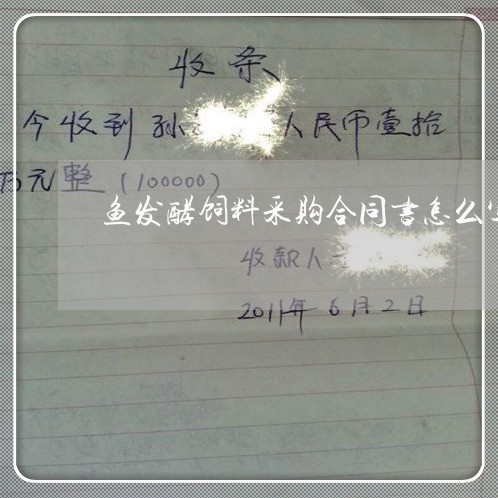 收条
今收到孙 人民币壹拾
万元整(100000)
鱼发酵饲料采购合同书怎么
收款人
2011年6月2日